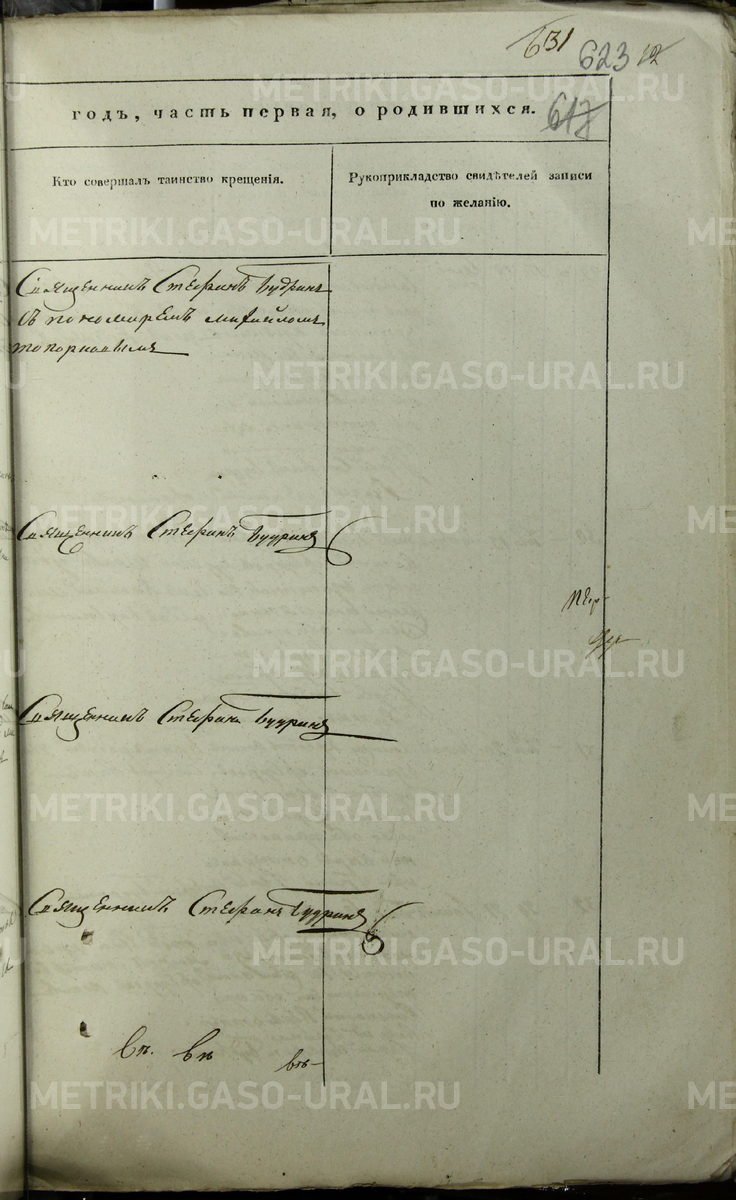 631 623 12
годъ, часть первая, о родившихся. 617
Кто совершалъ таинство крещенія.
Рукоприкладство свидѣтелей записи
по желанію.
Священникъ Стефанъ Будринъ
съ пономаремъ Михайломъ
Топорковымъ
Священникъ Стефанъ Будринъ
Священникъ Стефанъ Будринъ
Священникъ Стефанъ Будринъ
METRIKI.GASO-URAL.RU